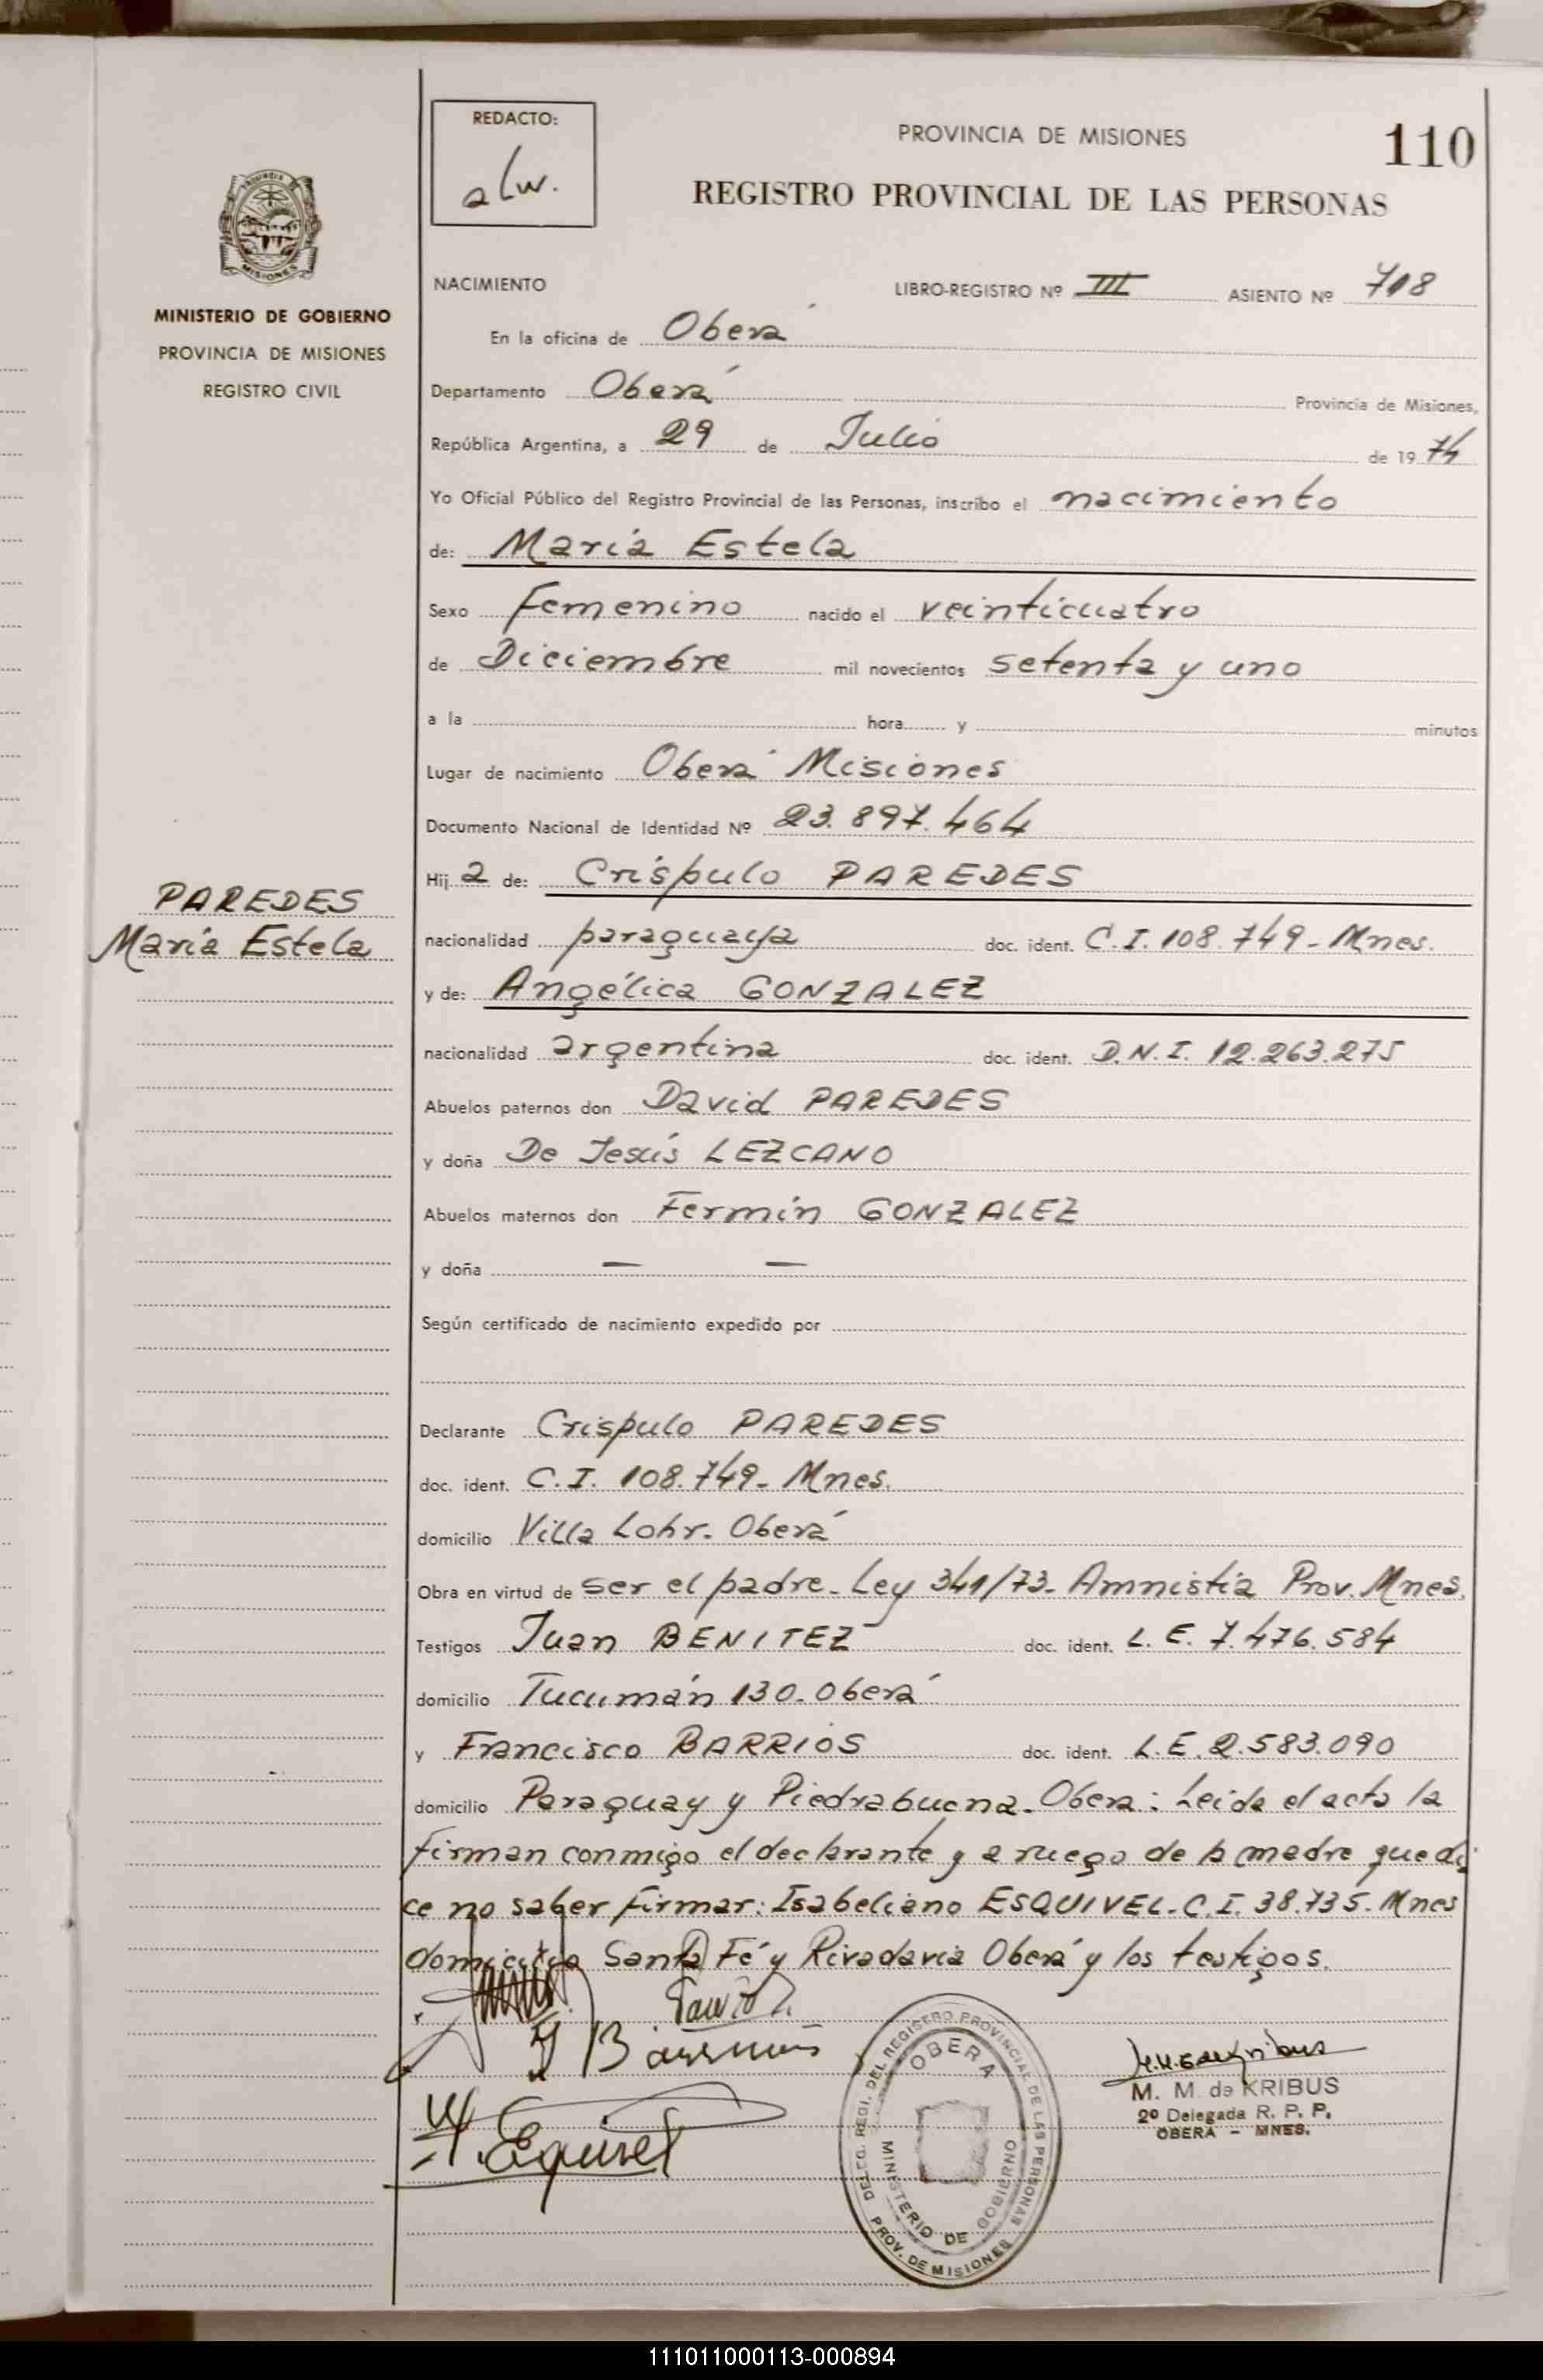 REDACTO:
alw.
PROVINCIA DE MISIONES
110
REGISTRO PROVINCIAL DE LAS PERSONAS
PROVINCIA DE
MISIONES
MINISTERIO DE GOBIERNO
PROVINCIA DE MISIONES
REGISTRO CIVIL
NACIMIENTO LIBRO-REGISTRO Nº III ASIENTO Nº 718
En la oficina de Oberá
Departamento Oberá Provincia de Misiones,
República Argentina, a 29 de Julio de 1974
Yo Oficial Público del Registro Provincial de las Personas, inscribo el nacimiento
de: María Estela
Sexo Femenino nacido el veinticuatro
de Diciembre mil novecientos setenta y uno
a la hora y minutos
Lugar de nacimiento Oberá Misiones
Documento Nacional de Identidad Nº 23.897.464
Hija de: Críspulo PAREDES
PAREDES
María Estela
nacionalidad paraguaya doc. ident. C.I. 108.749- Mnes.
y de: Angélica GONZALEZ
nacionalidad argentina doc. ident. D.N.I. 12.263.275
Abuelos paternos don David PAREDES
y doña De Jesús LEZCANO
Abuelos maternos don Fermín GONZALEZ
y doña — —
Según certificado de nacimiento expedido por
Declarante Críspulo PAREDES
doc. ident. C.I. 108.749- Mnes.
domicilio Villa Lohr- Oberá
Obra en virtud de ser el padre- Ley 341/73- Amnistía Prov. Mnes.
Testigos Juan BENITEZ doc. ident. L.E. 7.476.584
domicilio Tucumán 130- Oberá
y Francisco BARRIOS doc. ident. L.E. 2.583.090
domicilio Paraguay y Piedrabuena- Oberá: Leída el acta la
firman conmigo el declarante y a ruego de la madre que di
ce no saber firmar: Isabeliano ESQUIVEL- C.I. 38.735- Mnes
domicilio Santa Fé y Rivadavia Oberá y los testigos.
DELEG. REGI. DEL REGISTRO PROVINCIAL DE LAS PERSONAS
OBERA
MINISTERIO DE GOBIERNO
PROV. DE MISIONES
M. M. de KRIBUS
2º Delegada R. P. P.
OBERA - MNES.
111011000113-000894